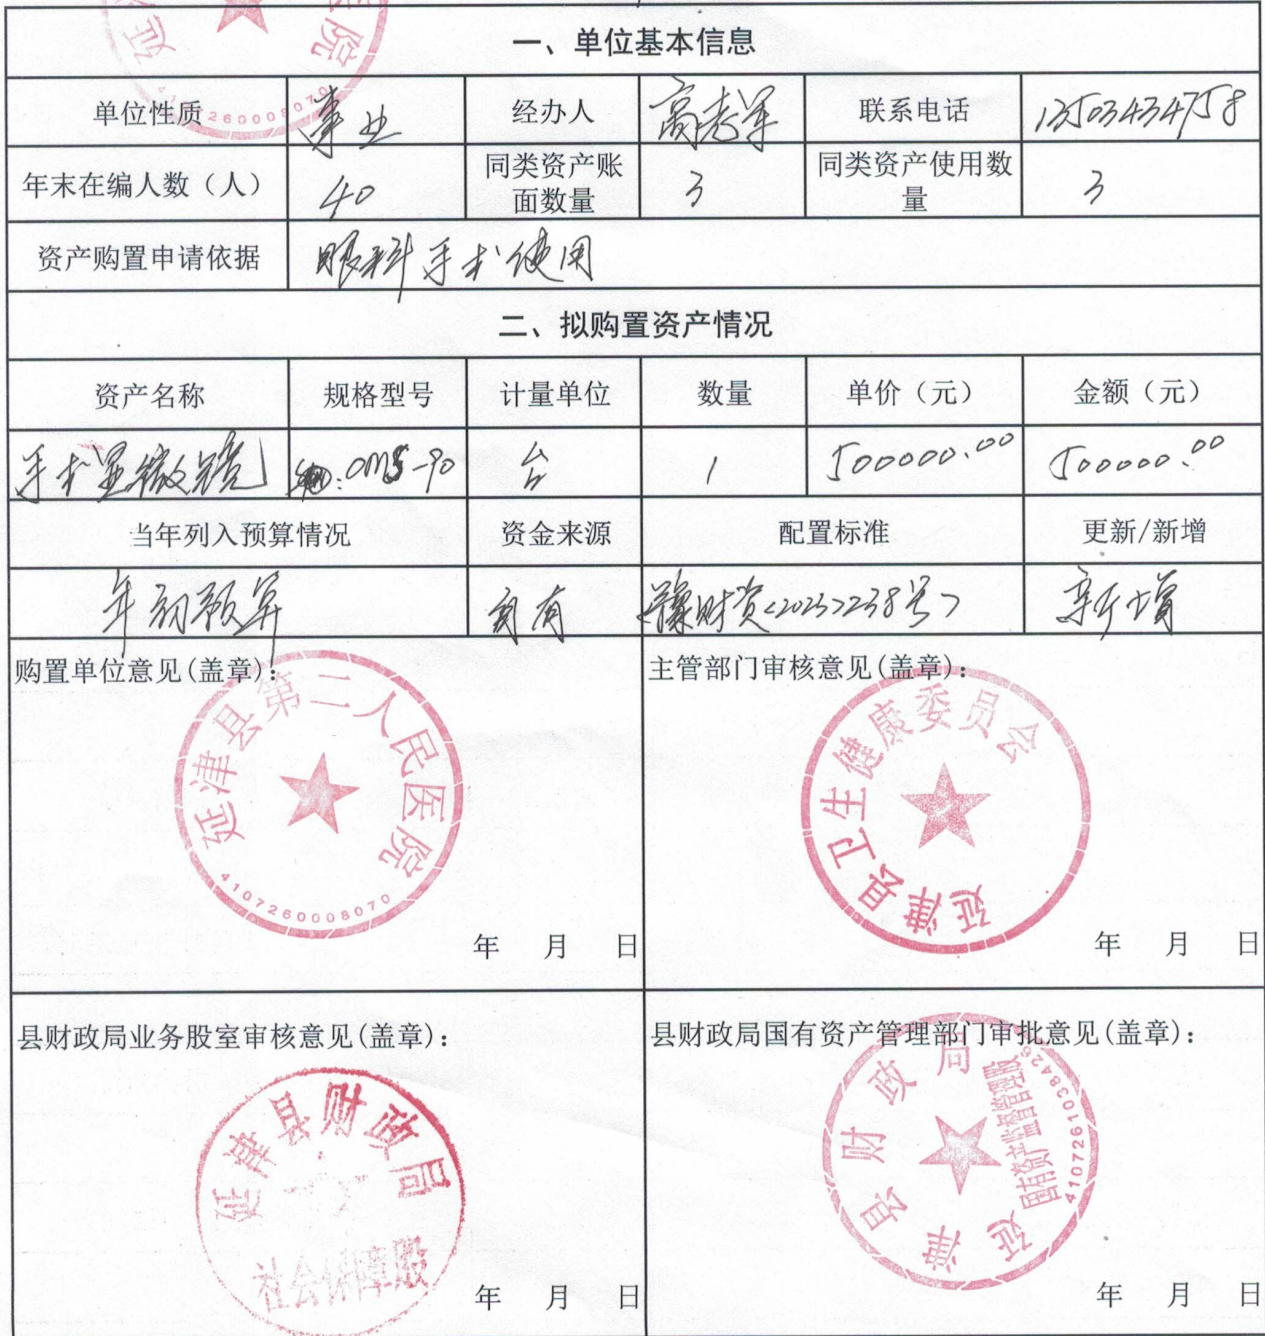 延 院
4107260008070
一、单位基本信息
单位性质 事业 经办人 高志军 联系电话 13503434758
年末在编人数（人） 40 同类资产账面数量 3 同类资产使用数量 3
资产购置申请依据 眼科手术使用
二、拟购置资产情况
资产名称 规格型号 计量单位 数量 单价（元） 金额（元）
手术显微镜 OMS-90 台 1 500000.00 500000.00
当年列入预算情况 资金来源 配置标准 更新/新增
年初预算 自有 豫财资<2023>238号> 新增
购置单位意见(盖章)：
延津县第二人民医院
4107260008070
年 月 日
主管部门审核意见(盖章)：
延津县卫生健康委员会
年 月 日
县财政局业务股室审核意见(盖章)：
延津县财政局
社会保障股
年 月 日
县财政局国有资产管理部门审批意见(盖章)：
延津县财政局
国有资产监督管理股
年 月 日